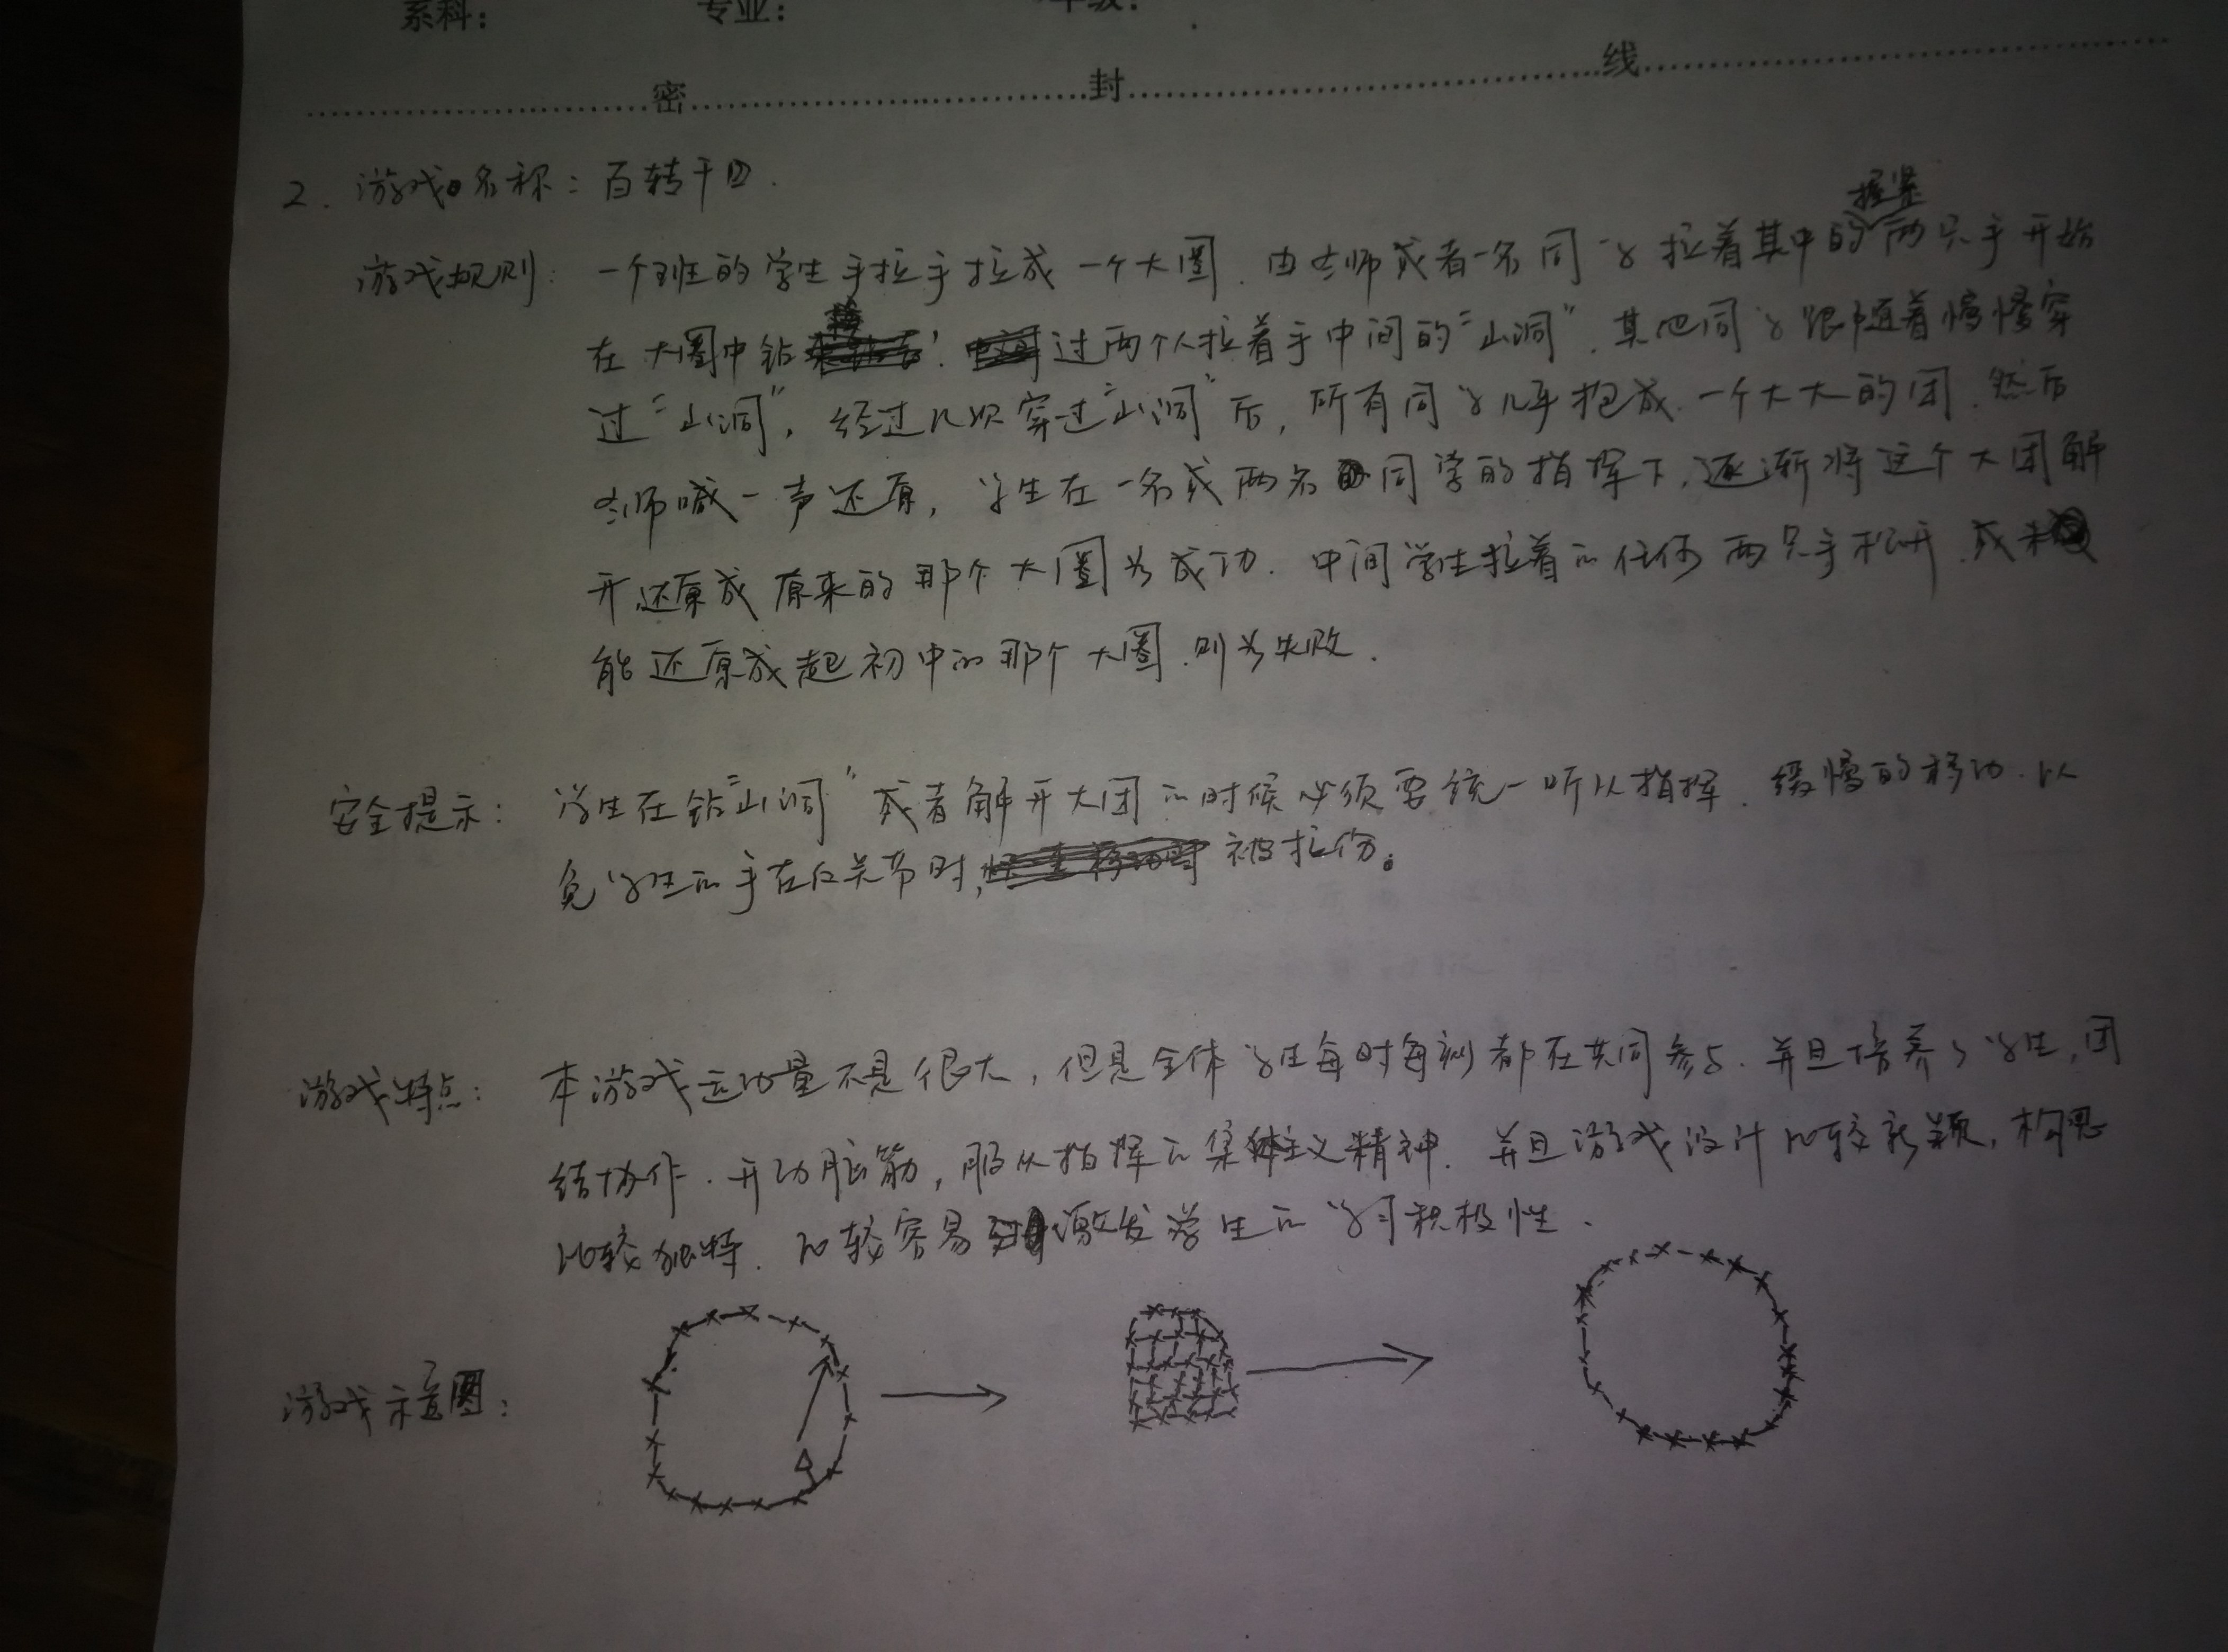 系科： 专业： 年级：
密 封 线
2. 游戏名称：百转千回.
握紧
游戏规则：一个班的学生手拉手拉成一个大圈.由老师或者一名同学拉着其中的两只手开始
在大圈中钻过两个人拉着手中间的“山洞”.其他同学跟随着慢慢穿
过“山洞”，经过几次穿过“山洞”后，所有同学几乎抱成一个大大的团.然后
老师喊一声还原，学生在一名或两名同学的指挥下,逐渐将这个大团解
开,还原成原来的那个大圈为成功.中间学生拉着的任何两只手松开.或未
能还原成起初中的那个大圈.则为失败.
安全提示：学生在钻“山洞”或者解开大团的时候必须要统一听从指挥.缓慢的移动.以
免学生的手在反关节时,被拉伤。
游戏特点：本游戏运动量不是很大，但是全体学生每时每刻都在共同参与.并且培养了学生,团
结协作.开动脑筋，服从指挥的集体主义精神.并且游戏设计比较新颖,构思
比较独特.比较容易激发学生的学习积极性.
游戏示意图：